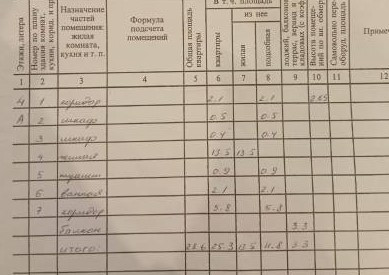 Этажи, литера
Номер по плану
Назначение частей помещения: жилая комната, кухня и т. п.
Формула подсчета помещений
Общая площадь квартиры
В т. ч. площадь
квартиры
из нее
жилая
подсобная
Высота помещ.
Самовольно
Примеч
1 2 3 4 5 6 7 8 9 10 11 12
4 1 коридор 2.1 2.1 2.65
А 2 шкаф 0.5 0.5
3 шкаф 0.4 0.4
4 жилая 13.5 13.5
5 туалет 0.9 0.9
6 ванная 2.1 2.1
7 коридор 5.8 5.8
балкон 3.3
итого: 28.6 25.3 13.5 11.8 3.3